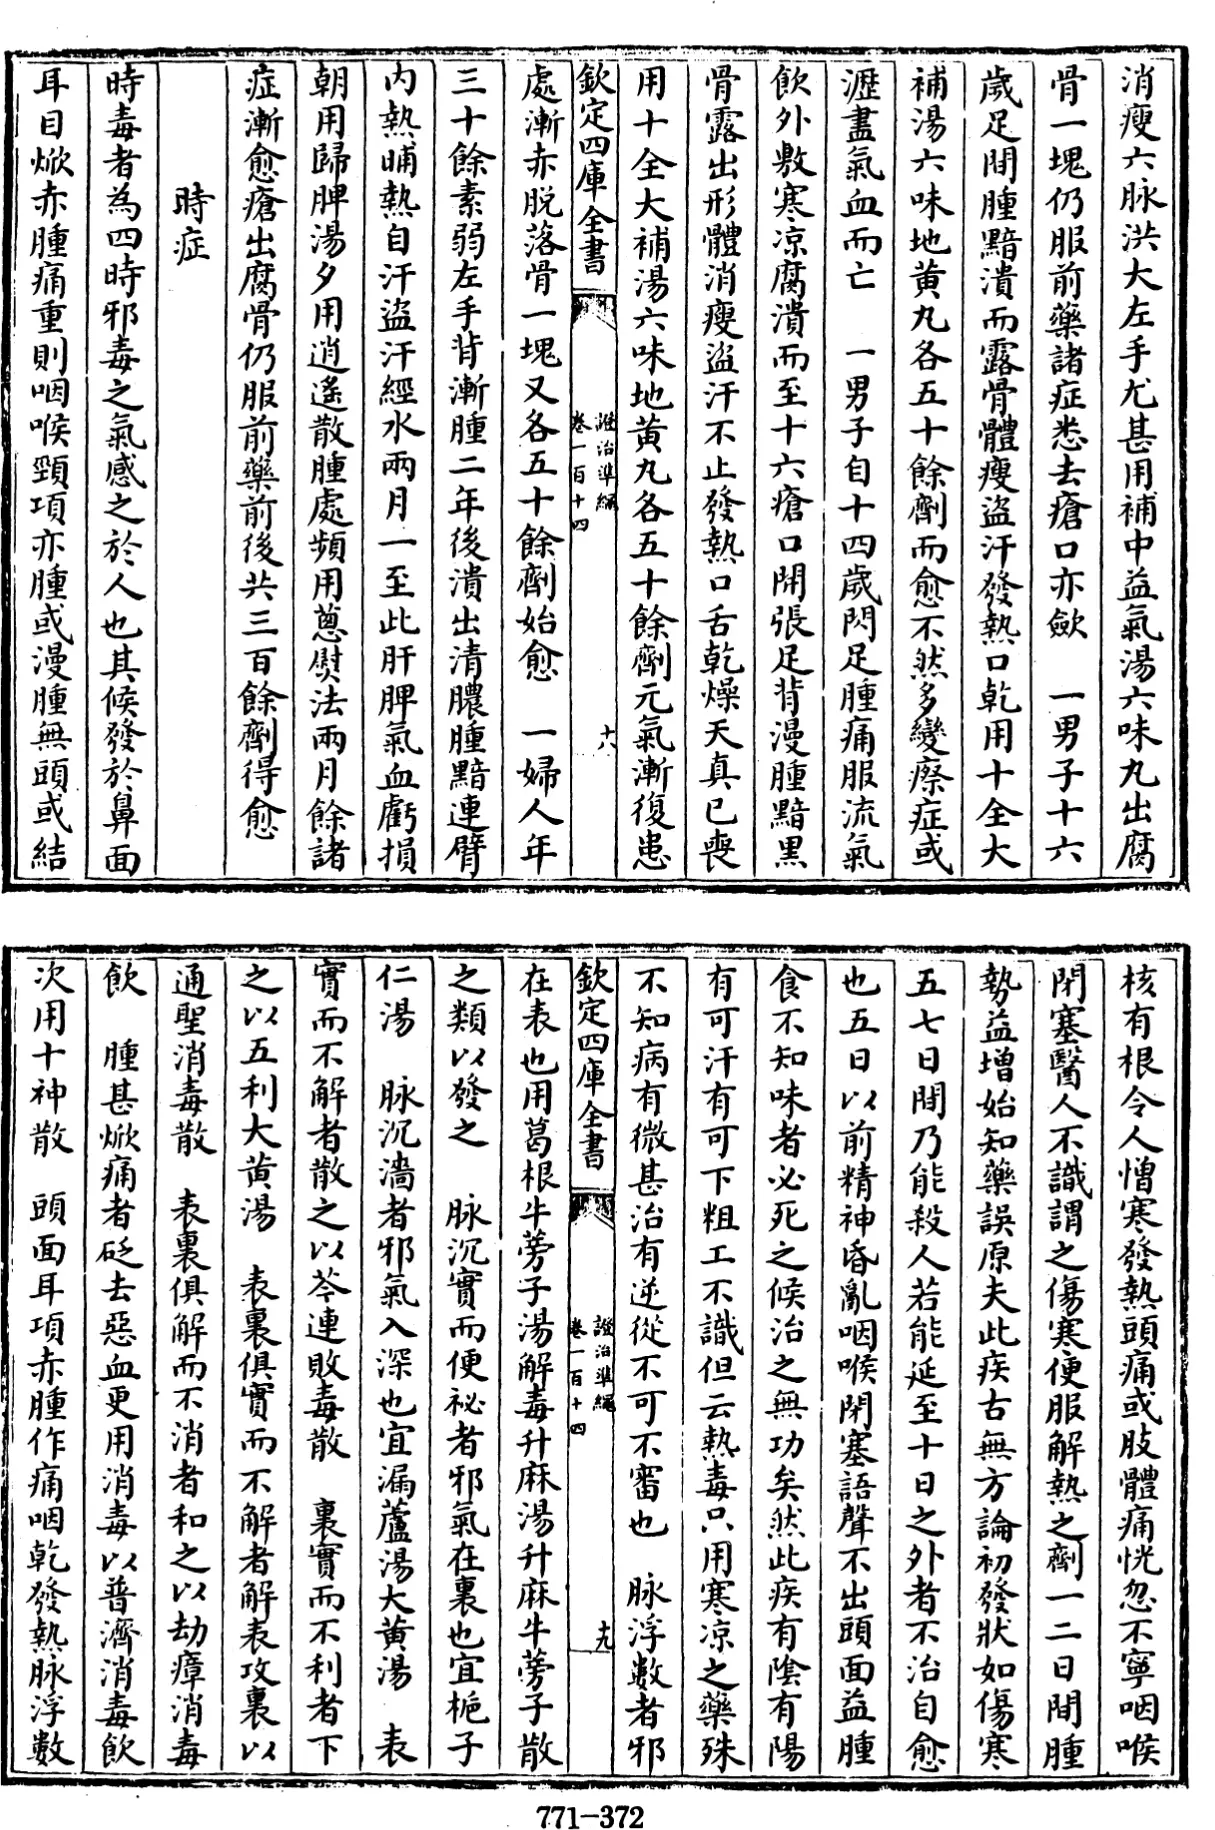 消瘦六脉洪大左手尤甚用補中益氣湯六味丸出腐
骨一塊仍服前藥諸症悉去瘡口亦歛　一男子十六
歲足間腫黯潰而露骨體瘦盜汗發熱口乾用十全大
補湯六味地黃丸各五十餘劑而愈不然多變瘵症或
瀝盡氣血而亡　一男子自十四歲閃足腫痛服流氣
飲外敷寒凉腐潰而至十六瘡口開張足背漫腫黯黑
骨露出形體消瘦盜汗不止發熱口舌乾燥天真已喪
用十全大補湯六味地黃丸各五十餘劑元氣漸復患
欽定四庫全書　證治準繩　卷一百十四　十八
處漸赤脱落骨一塊又各五十餘劑始愈　一婦人年
三十餘素弱左手背漸腫二年後潰出清膿腫黯連臂
内熱晡熱自汗盜汗經水兩月一至此肝脾氣血虧損
朝用歸脾湯夕用逍遙散腫處頻用蔥熨法兩月餘諸
症漸愈瘡出腐骨仍服前藥前後共三百餘劑得愈
時症
時毒者為四時邪毒之氣感之於人也其候發於鼻面
耳目焮赤腫痛重則咽喉頸項亦腫或漫腫無頭或結
核有根令人憎寒發熱頭痛或肢體痛恍忽不寧咽喉
閉塞醫人不識謂之傷寒便服解熱之劑一二日間腫
勢益增始知藥誤原夫此疾古無方論初發狀如傷寒
五七日間乃能殺人若能延至十日之外者不治自愈
也五日以前精神昏亂咽喉閉塞語聲不出頭面益腫
食不知味者必死之候治之無功矣然此疾有陰有陽
有可汗有可下粗工不識但云熱毒只用寒凉之藥殊
不知病有微甚治有逆從不可不審也　脉浮數者邪
欽定四庫全書　證治準繩　卷一百十四　十九
在表也用葛根牛蒡子湯解毒升麻湯升麻牛蒡子散
之類以發之　脉沉實而便祕者邪氣在裏也宜梔子
仁湯　脉沉濇者邪氣入深也宜漏蘆湯大黃湯　表
實而不解者散之以芩連敗毒散　裏實而不利者下
之以五利大黃湯　表裏俱實而不解者解表攻裏以
通聖消毒散　表裏俱解而不消者和之以劫瘴消毒
飲　腫甚焮痛者砭去惡血更用消毒以普濟消毒飲
次用十神散　頭面耳項赤腫作痛咽乾發熱脉浮數
771-372